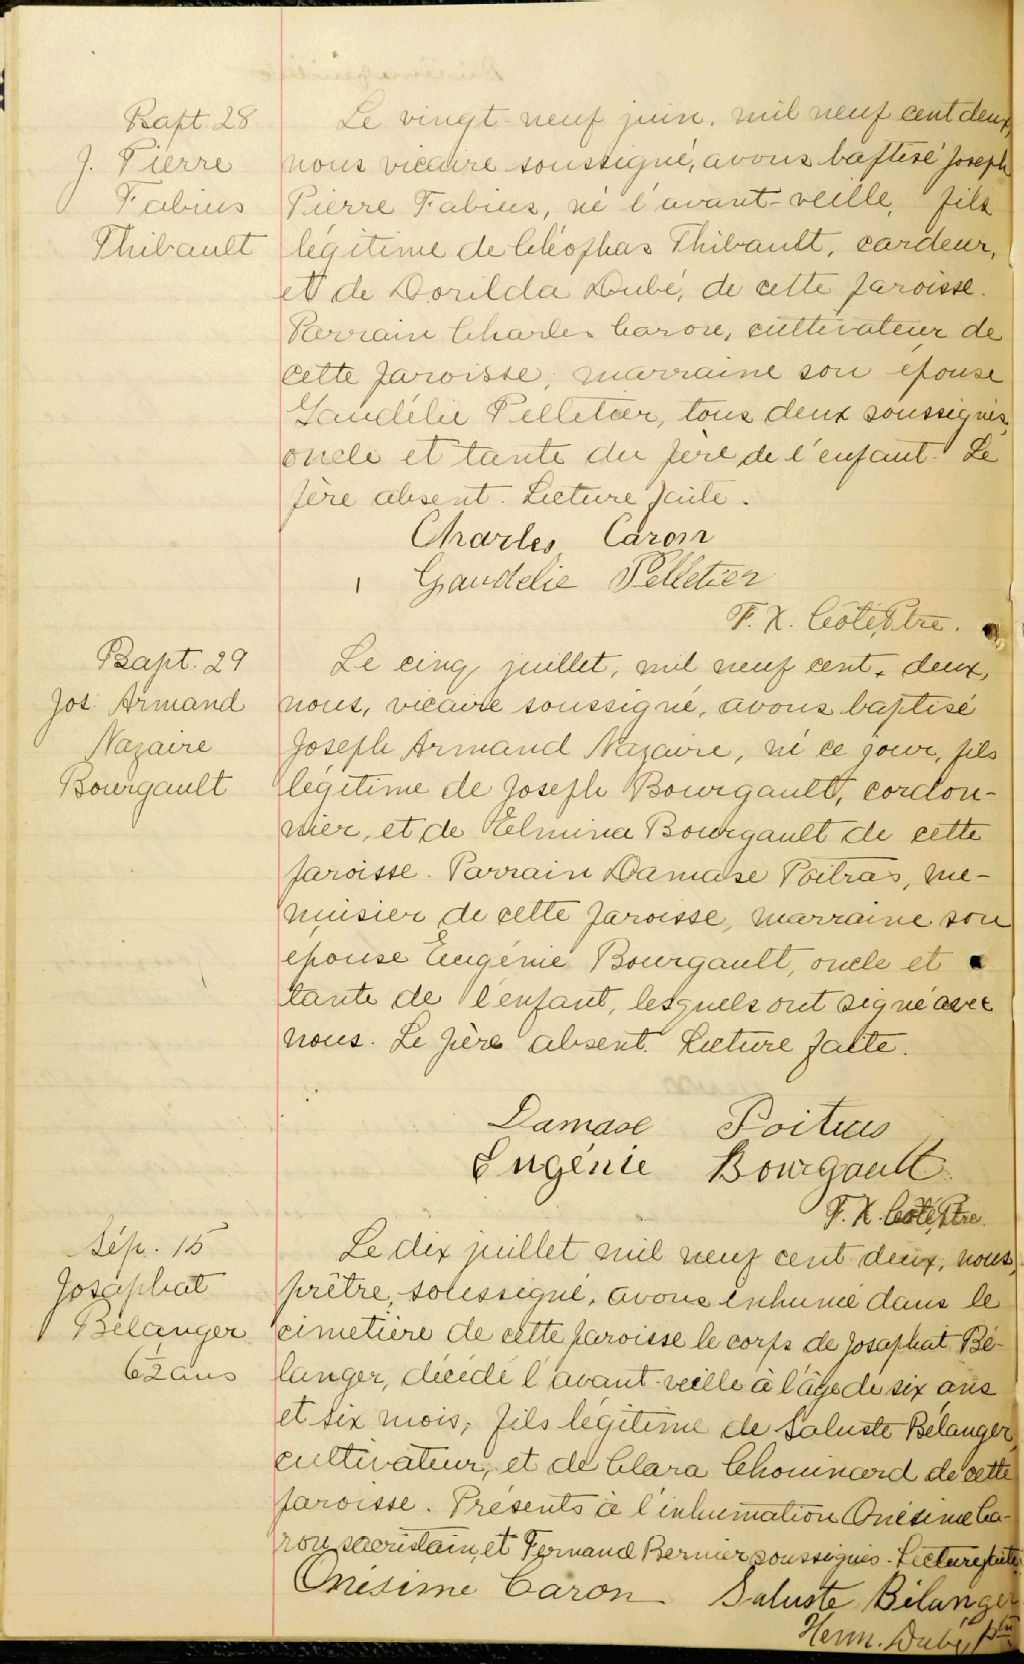 Bapt 28
J. Pierre
Fabius
Thibault
Le vingt-neuf juin, mil neuf cent deux,
nous vicaire soussigné, avons baptisé Joseph
Pierre Fabius, né l'avant-veille, fils
légitime de Cléophas Thibault, cardeur,
et de Dorilda Dubé, de cette paroisse.
Parrain Charles Caron, cultivateur de
cette paroisse, marraine son épouse
Gaudélie Pelletier, tous deux soussignés,
oncle et tante du père de l'enfant. Le
père absent. Lecture faite.
Charles Caron
Gaudelie Pelletier
F. X. Côté, Ptre.
Bapt. 29
Jos Armand
Nazaire
Bourgault
Le cinq juillet, mil neuf cent, deux,
nous, vicaire soussigné, avons baptisé
Joseph Armand Nazaire, né ce jour, fils
légitime de Joseph Bourgault, cordon-
nier, et de Elmina Bourgault de cette
paroisse. Parrain Damase Poitras, me-
nuisier de cette paroisse, marraine son
épouse Eugénie Bourgault, oncle et
tante de l'enfant, lesquels ont signé avec
nous. Le père absent. Lecture faite.
Damase Poitras
Eugénie Bourgault
F. X. Côté, Ptre.
Sép. 15
Josaphat
Bélanger
6½ ans
Le dix juillet mil neuf cent deux, nous,
prêtre, soussigné, avons inhumé dans le
cimetière de cette paroisse le corps de Josaphat Bé-
langer, décédé l'avant-veille à l'âge de six ans
et six mois, fils légitime de Saluste Bélanger,
cultivateur, et de Clara Chouinard de cette
paroisse. Présents à l'inhumation Onésime Ca-
ron sacristain, et Fernand Bernier soussignés. Lecture faite.
Onésime Caron Saluste Bélanger
Herm. Dubé, ptre